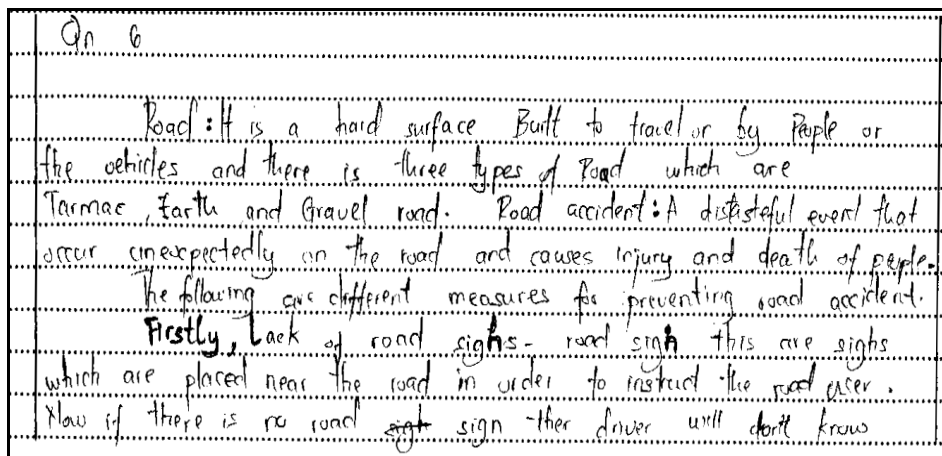 Qn 6
Road: It is a hard surface Built to travel or by People or
the vehicles and there is three types of Road which are
Tarmac, Earth and Gravel road. Road accident: A distasteful event that
occur unexpectedly on the road and causes injury and death of people.
The following are different measures for preventing road accident.
Firstly, Lack of road sighs - road sigh this are sighs
which are placed near the road in order to instruct the road user.
Now if there is no road sign ther driver will don't know